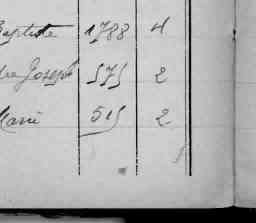 Baptiste 1788 4
dre Joseph 575 2
Marie 515 2